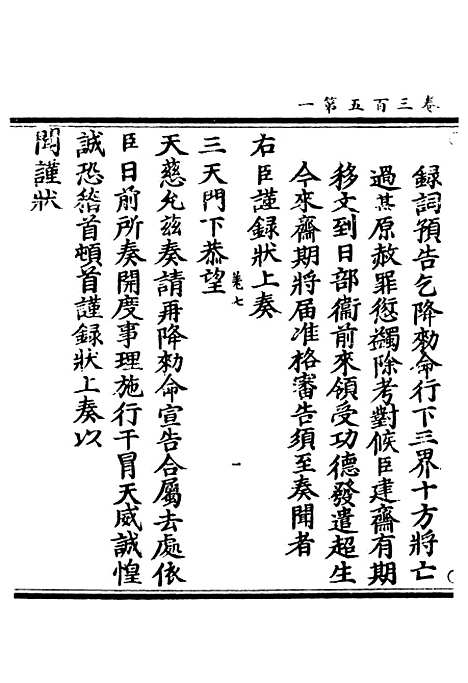 卷三百五第一
録詞預告乞降勑命行下三界十方將亡
過某原赦罪愆蠲除考對候臣建齋有期
移文到日部衞前來領受功德發遣超生
今來齋期將届准格審告須至奏聞者
右臣謹録狀上奏
卷七
一
三天門下恭望
天慈允兹奏請再降勑命宣告合屬去處依
臣日前所奏開度事理施行干冒天威誠惶
誠恐稽首頓首謹録狀上奏以
聞謹狀